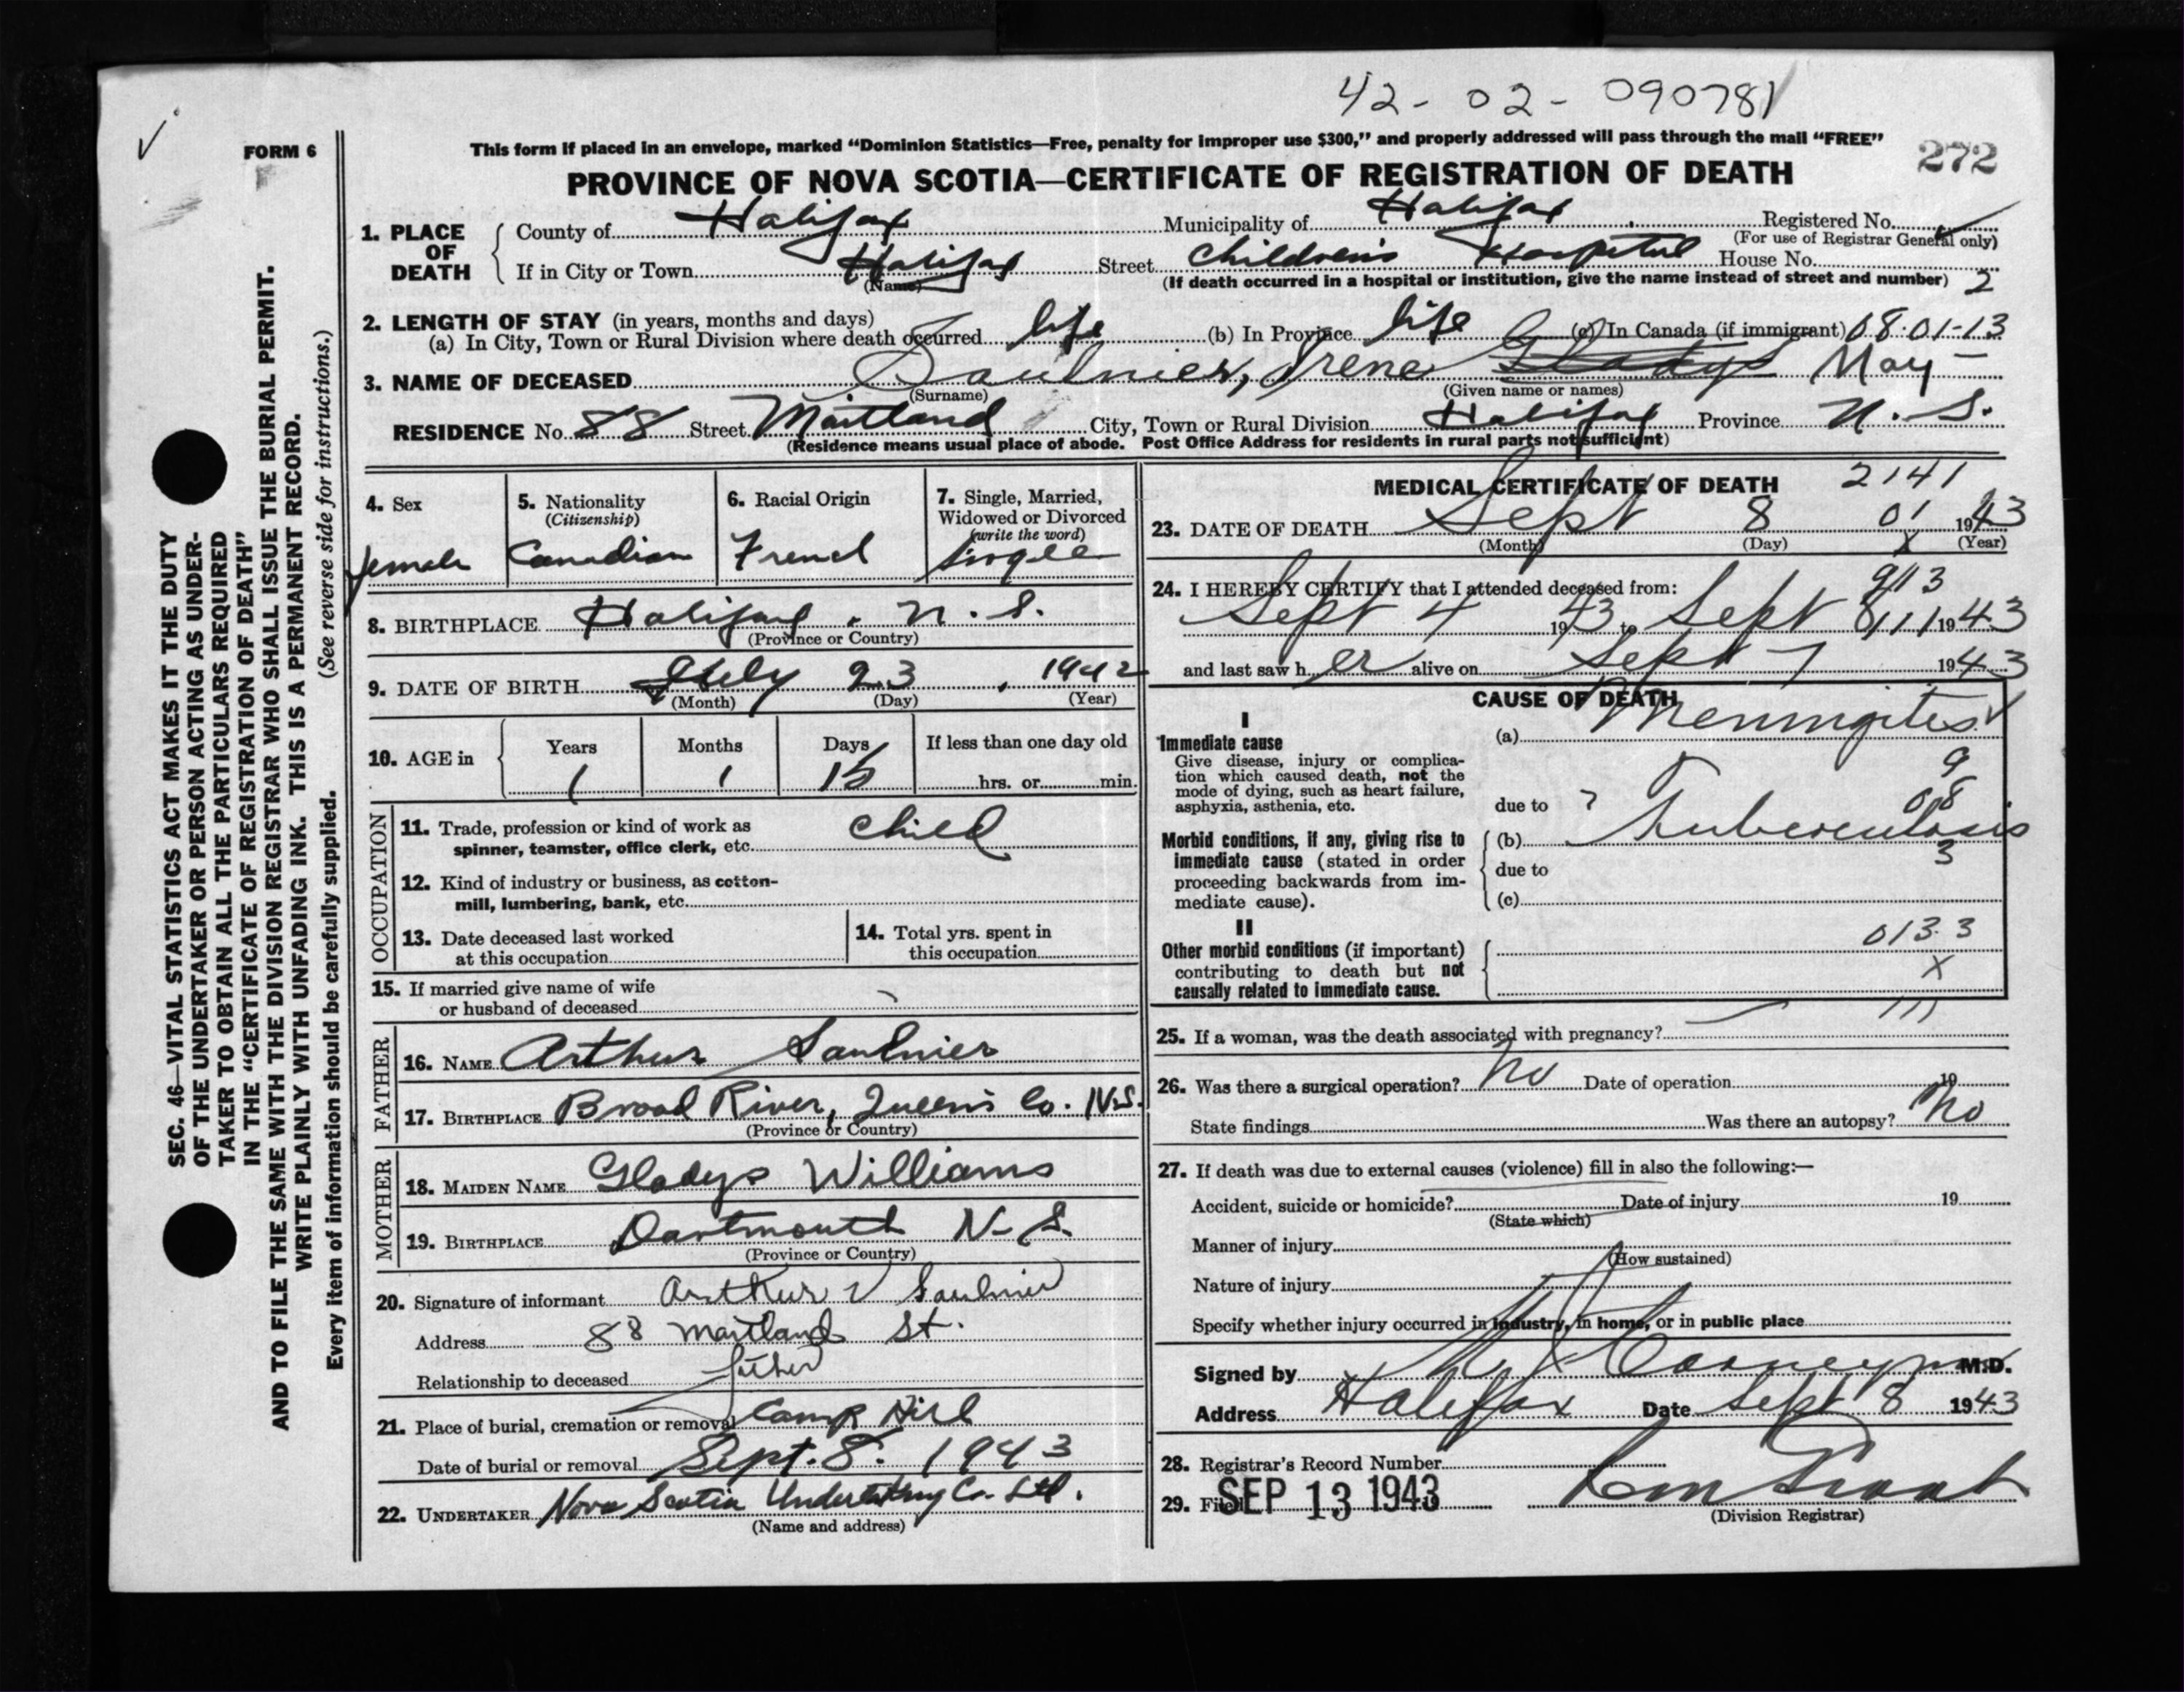 42-02-090781
FORM 6
This form if placed in an envelope, marked “Dominion Statistics—Free, penalty for improper use $300,” and properly addressed will pass through the mail “FREE”
272
PROVINCE OF NOVA SCOTIA—CERTIFICATE OF REGISTRATION OF DEATH
1. PLACE OF DEATH
County of Halifax Municipality of Halifax Registered No.
(For use of Registrar General only)
If in City or Town Halifax Street Children's Hospital House No.
(Name) (If death occurred in a hospital or institution, give the name instead of street and number) 2
2. LENGTH OF STAY (in years, months and days)
(a) In City, Town or Rural Division where death occurred life (b) In Province life (c) In Canada (if immigrant) 08-01-13
3. NAME OF DECEASED Saulnier, Irene Gladys May
(Surname) (Given name or names)
RESIDENCE No. 88 Street Maitland City, Town or Rural Division Halifax Province N.S.
(Residence means usual place of abode. Post Office Address for residents in rural parts not sufficient)
4. Sex
female
5. Nationality
(Citizenship)
Canadian
6. Racial Origin
French
7. Single, Married,
Widowed or Divorced
(write the word)
Single
8. BIRTHPLACE Halifax. N.S.
(Province or Country)
9. DATE OF BIRTH July 23, 1942
(Month) (Day) (Year)
10. AGE in
Years Months Days If less than one day old
1 1 15 hrs. or min.
OCCUPATION
11. Trade, profession or kind of work as
spinner, teamster, office clerk, etc. child
12. Kind of industry or business, as cotton-
mill, lumbering, bank, etc.
13. Date deceased last worked
at this occupation
14. Total yrs. spent in
this occupation
15. If married give name of wife
or husband of deceased
FATHER
16. NAME Arthur Saulnier
17. BIRTHPLACE Broad River, Queens Co. N.S.
(Province or Country)
MOTHER
18. MAIDEN NAME Gladys Williams
19. BIRTHPLACE Dartmouth N-S.
(Province or Country)
20. Signature of informant Arthur V Saulnier
Address 88 Maitland St.
Relationship to deceased father
21. Place of burial, cremation or removal Camp Hill
Date of burial or removal Sept. 8. 1943
22. UNDERTAKER Nova Scotia Undertaking Co. Ltd.
(Name and address)
MEDICAL CERTIFICATE OF DEATH 2141
23. DATE OF DEATH Sept 8 01 1943
(Month) (Day) X (Year)
24. I HEREBY CERTIFY that I attended deceased from: 913
Sept 4 1943 to Sept 8 111 1943
and last saw her alive on Sept 7 1943
CAUSE OF DEATH
I
Immediate cause
Give disease, injury or complica-
tion which caused death, not the
mode of dying, such as heart failure,
asphyxia, asthenia, etc.
(a) Meningitis
9
due to ? 08
Morbid conditions, if any, giving rise to
immediate cause (stated in order
proceeding backwards from im-
mediate cause).
(b) Tuberculosis
3
due to
(c)
II
Other morbid conditions (if important)
contributing to death but not
causally related to immediate cause.
013.3
X
111
25. If a woman, was the death associated with pregnancy?
26. Was there a surgical operation? No Date of operation 19
State findings Was there an autopsy? No
27. If death was due to external causes (violence) fill in also the following:—
Accident, suicide or homicide? Date of injury 19
(State which)
Manner of injury
(How sustained)
Nature of injury
Specify whether injury occurred in industry, in home, or in public place
Signed by M.D.
Address Halifax Date Sept 8 1943
28. Registrar's Record Number
29. Filed SEP 13 1943
(Division Registrar)
SEC. 46—VITAL STATISTICS ACT MAKES IT THE DUTY
OF THE UNDERTAKER OR PERSON ACTING AS UNDER-
TAKER TO OBTAIN ALL THE PARTICULARS REQUIRED
IN THE “CERTIFICATE OF REGISTRATION OF DEATH”
AND TO FILE THE SAME WITH THE DIVISION REGISTRAR WHO SHALL ISSUE THE BURIAL PERMIT.
WRITE PLAINLY WITH UNFADING INK. THIS IS A PERMANENT RECORD.
Every item of information should be carefully supplied. (See reverse side for instructions.)